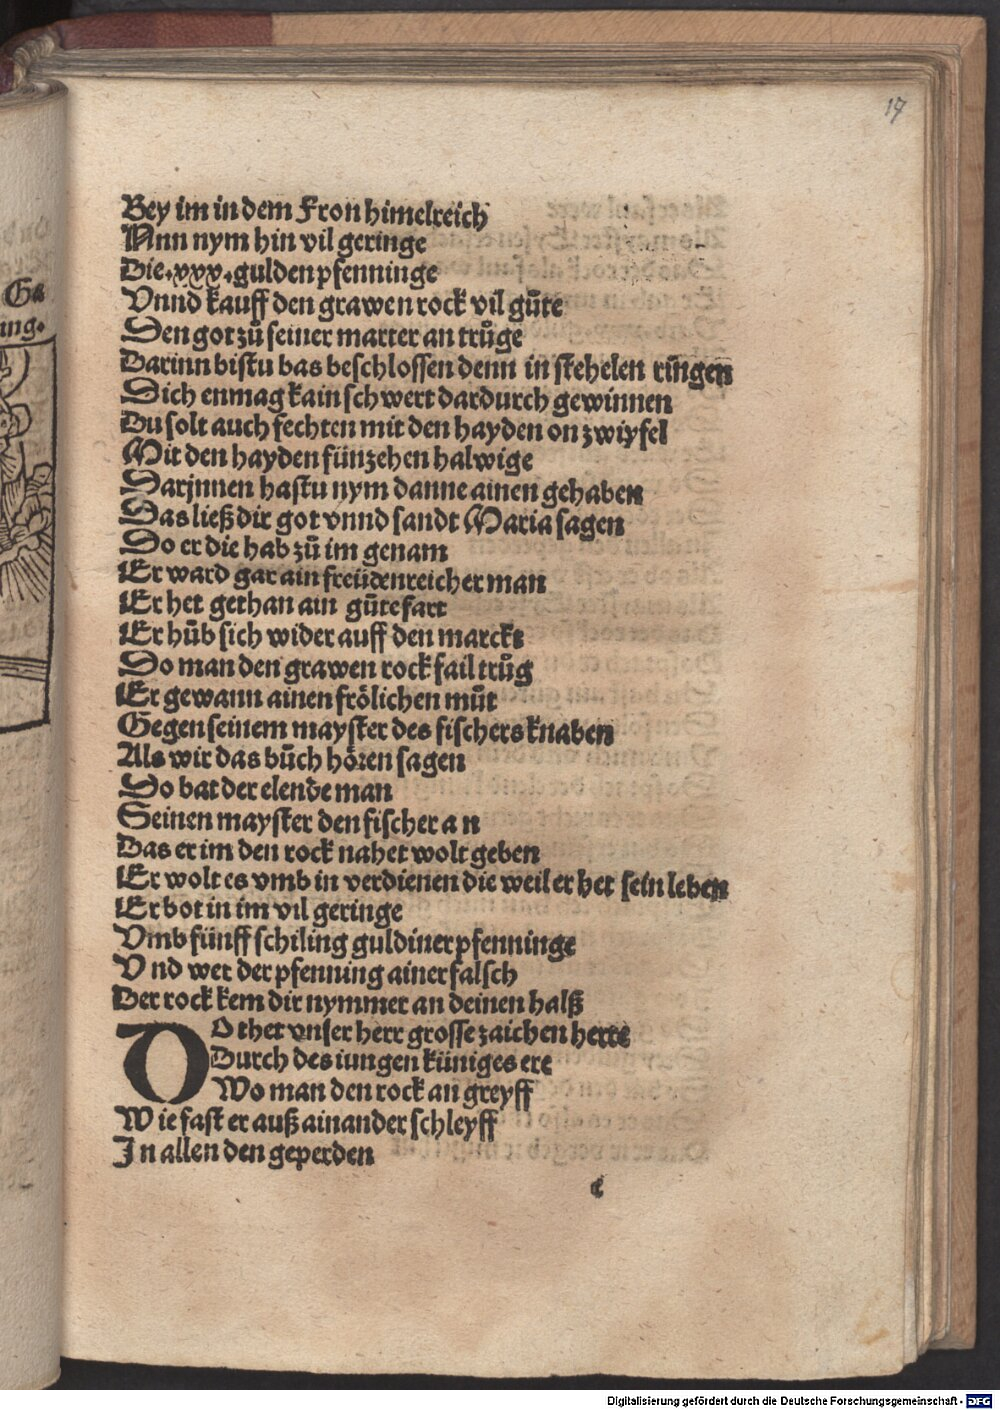 17
Ga
ung.
Bey im in dem Fron himelreich
Nnn nym hin vil geringe
Die.xxx.gulden pfenninge
Vnnd kauff den grawen rock vil gůte
Den got zů seiner marter an trůge
Darinn bistu bas beschlossen denn in stehelen ringen
Dich enmag kain schwert dardurch gewinnen
Du solt auch fechten mit den hayden on zwiyfel
Mit den hayden fünzehen halwige
Darjnnen hastu nym danne ainen gehaben
Das ließ dir got vnnd sandt Maria sagen
Do er die hab zů im genam
Er ward gar ain freüdenreicher man
Er het gethan ain gůte fart
Er hůb sich wider auff den marckt
Do man den grawen rock fail trůg
Er gewann ainen frölichen můt
Gegen seinem mayster des fischers knaben
Als wir das bůch hören sagen
Do bat der elende man
Seinen mayster den fischer a n
Das er im den rock nahet wolt geben
Er wolt es vmb in verdienen die weil er het sein leben
Er bot in im vil geringe
Vmb fünff schiling guldiner pfenninge
V nd wer der pfenning ainer falsch
Der rock kem dir nymmer an deinen halß
DO thet vnser herr grosse zaichen herre
Durch des iungen küniges ere
Wo man den rock an greyff
W ie fast er auß ainander schleyff
In allen den geperden
c
Digitalisierung gefördert durch die Deutsche Forschungsgemeinschaft - DFG